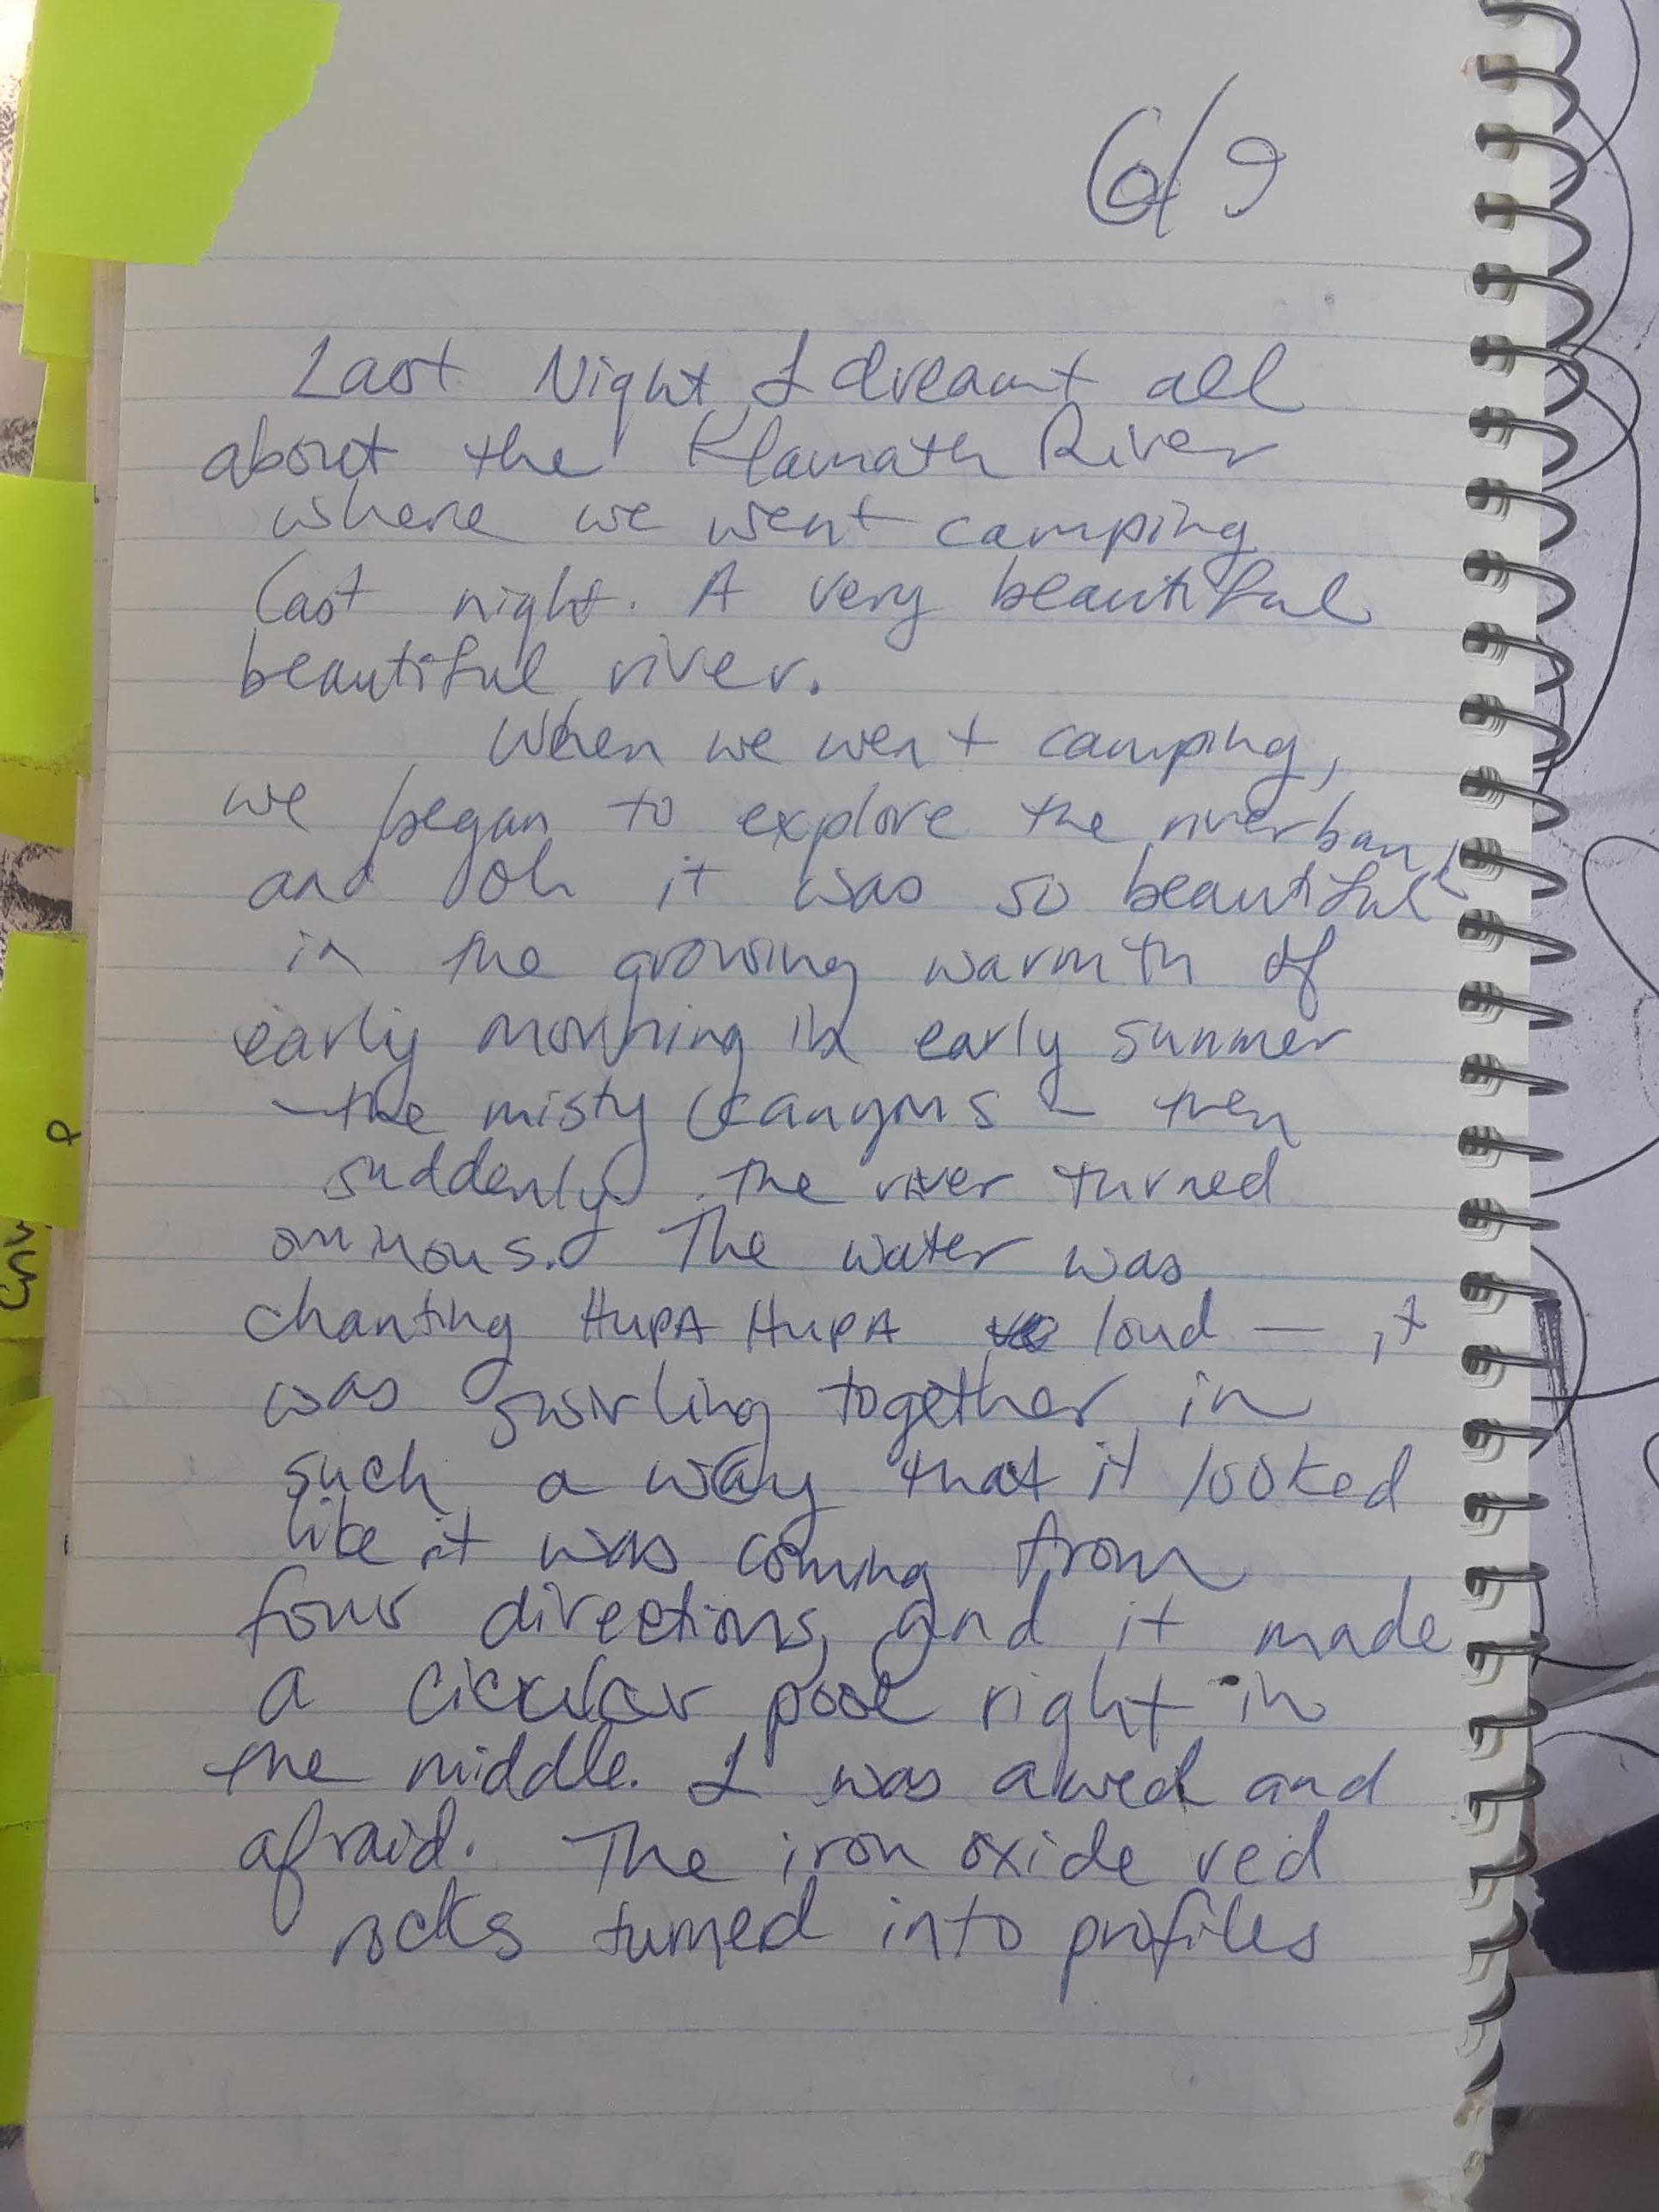 6/9
Last Night I dreamt all
about the Klamath River
where we went camping
last night. A very beautiful
beautiful river.
When we went camping,
we began to explore the riverbank
and ooh it was so beautiful
in the growing warmth of
early morning in early summer
- the misty canyons - then
suddenly the river turned
ominous. The water was
chanting HUPA HUPA loud — it
was swirling together in
such a way that it looked
like it was coming from
four directions, and it made
a circular pool right in
the middle. I was awed and
afraid. The iron oxide red
rocks turned into profiles